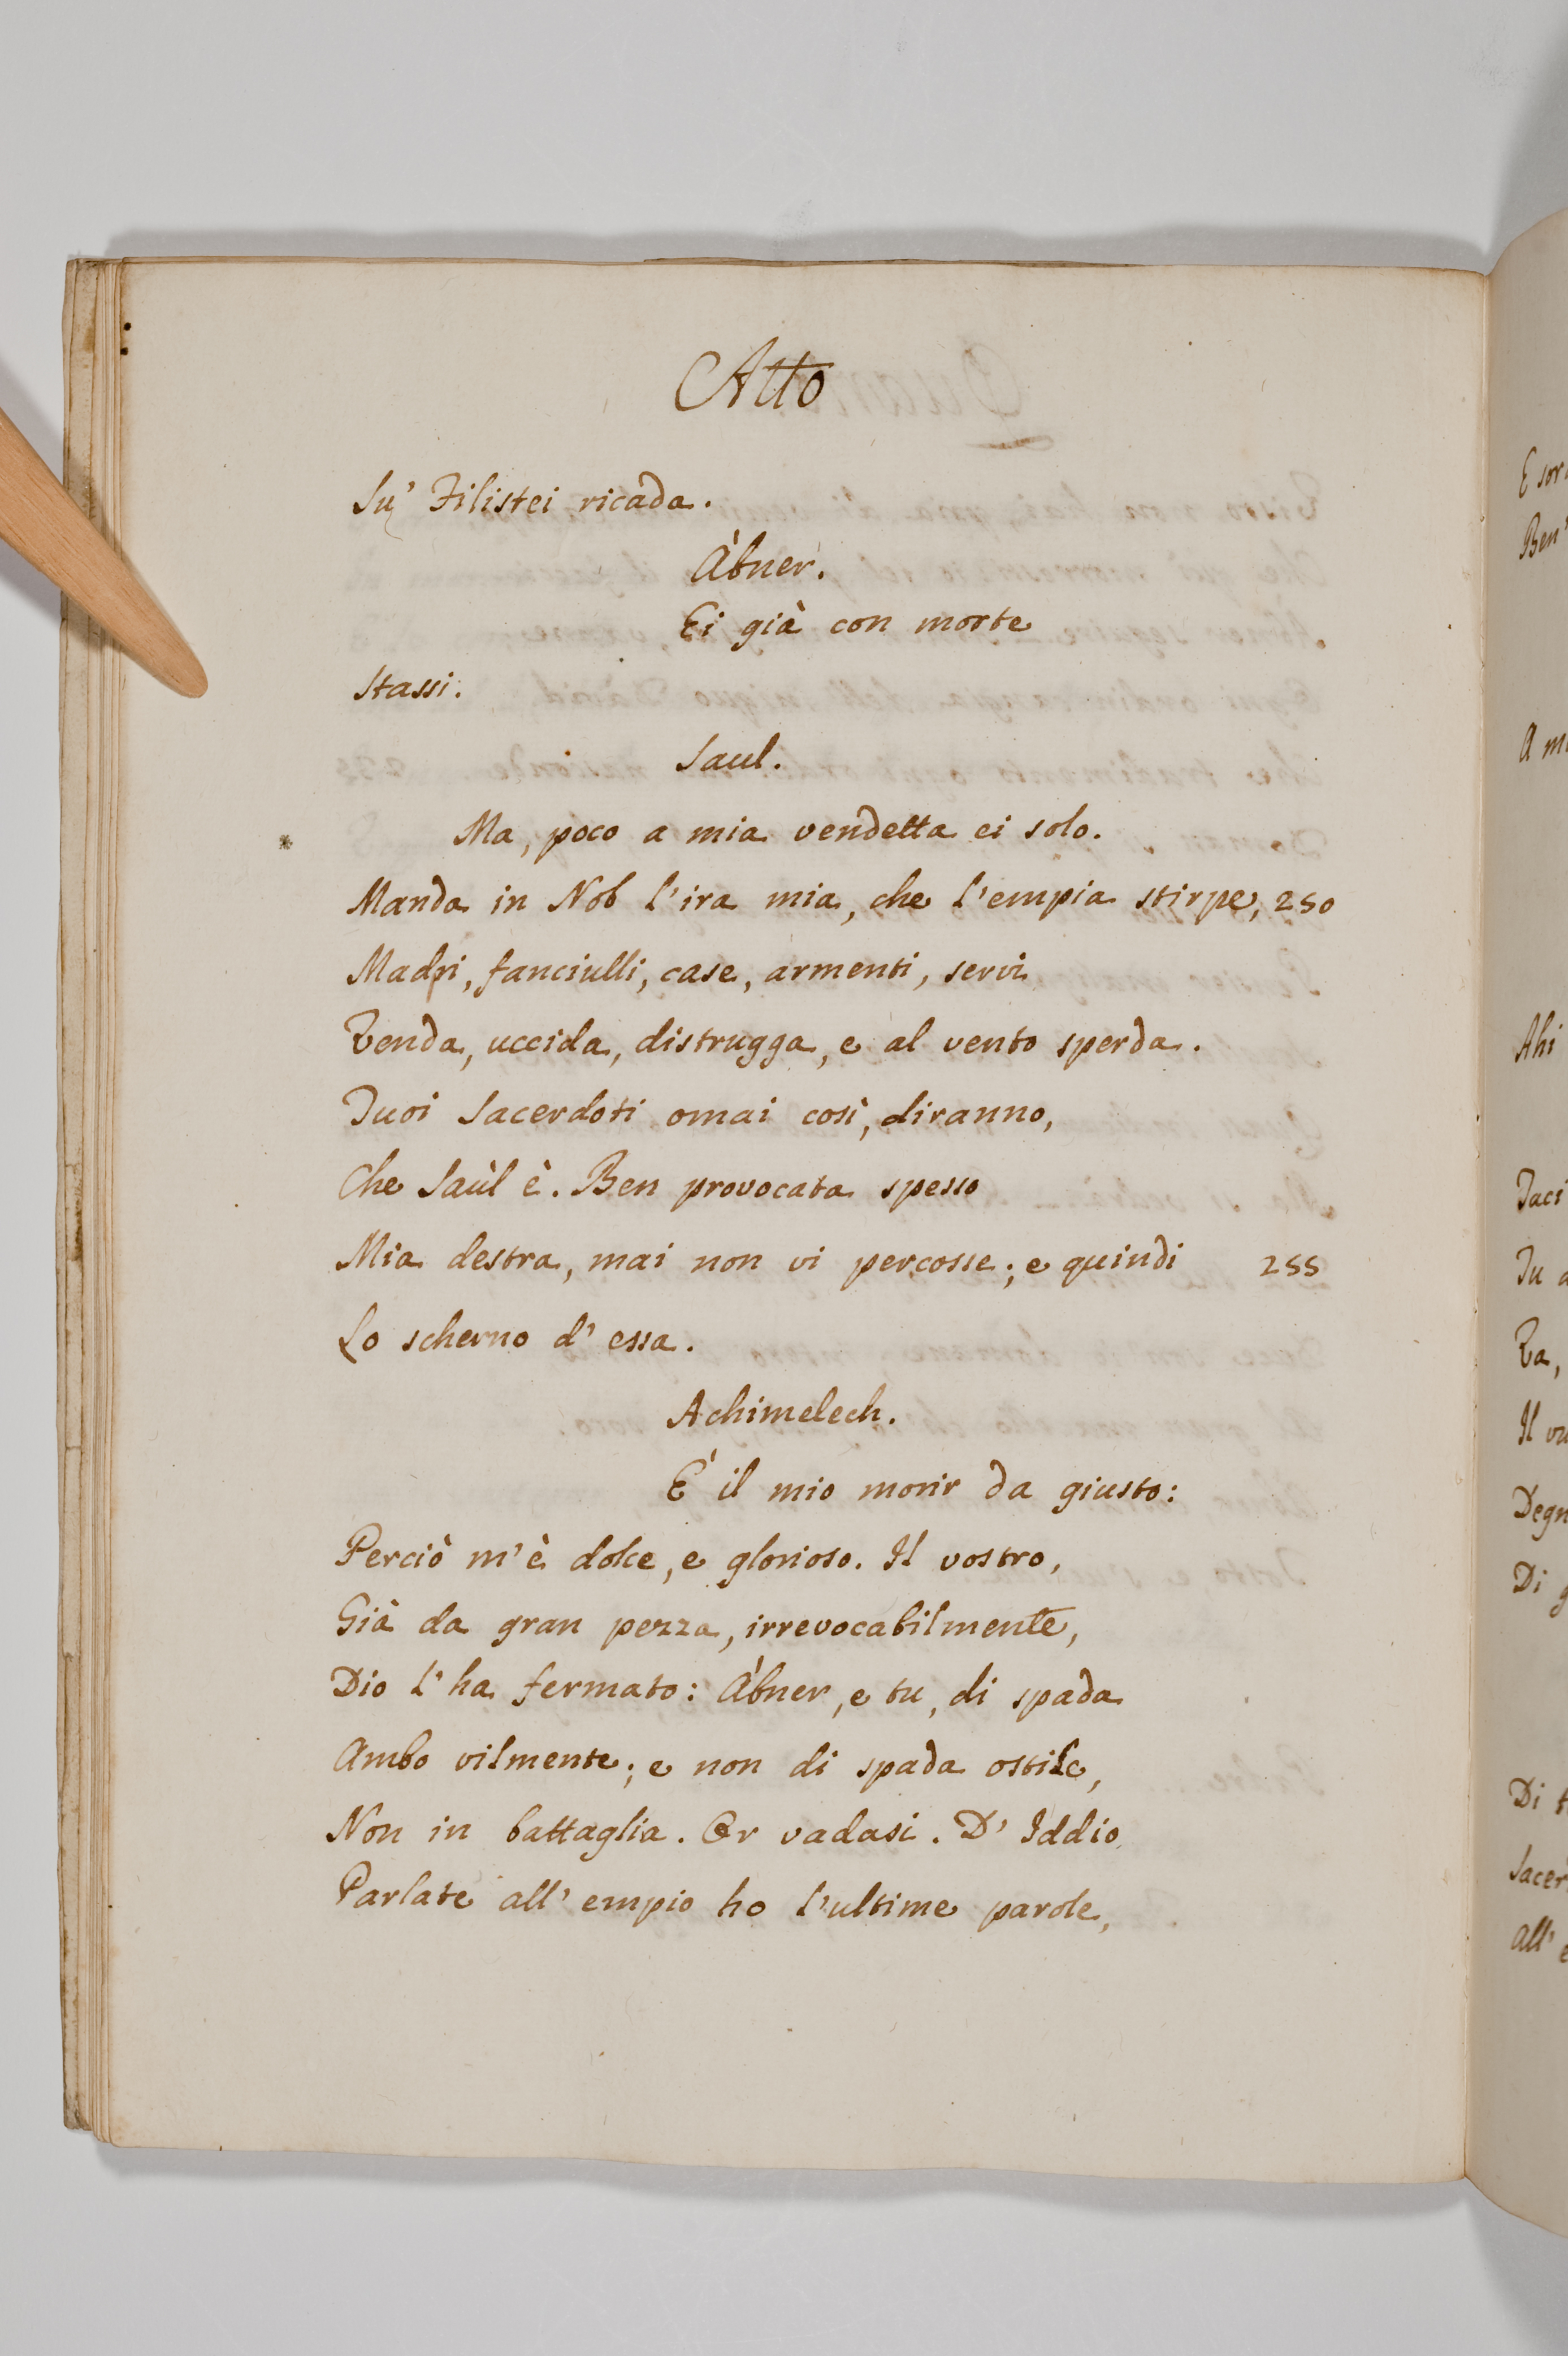 Atto
Su' Filistei ricada.
Ábner.
Ei già con morte
Stassi.
Saul.
Ma, poco a mia vendetta ei solo.
Manda in Nob l'ira mia, che l'empia stirpe, 250
Madri, fanciulli, case, armenti, servi
Tenda, uccida, distrugga, e al vento sperda.
Tuoi Sacerdoti omai così, diranno,
Che Saùl è. Ben provocata spesso
Mia destra, mai non vi percosse; e quindi 255
Lo scherno d' essa.
Achimelech.
É il mio morir da giusto:
Perciò m'è dolce, e glorioso. Il vostro,
Già da gran pezza, irrevocabilmente,
Dio l' ha fermato: Ábner, e tu, di spada
Ambo vilmente; e non di spada ostile,
Non in battaglia. Or vadasi. D' Iddio
Parlate all' empio ho l'ultime parole,
E sor
Ben'
A m
Ahi
Taci
Tu a
Ta,
Il vu
Degn
Di g
Di t
Sacer
All' e